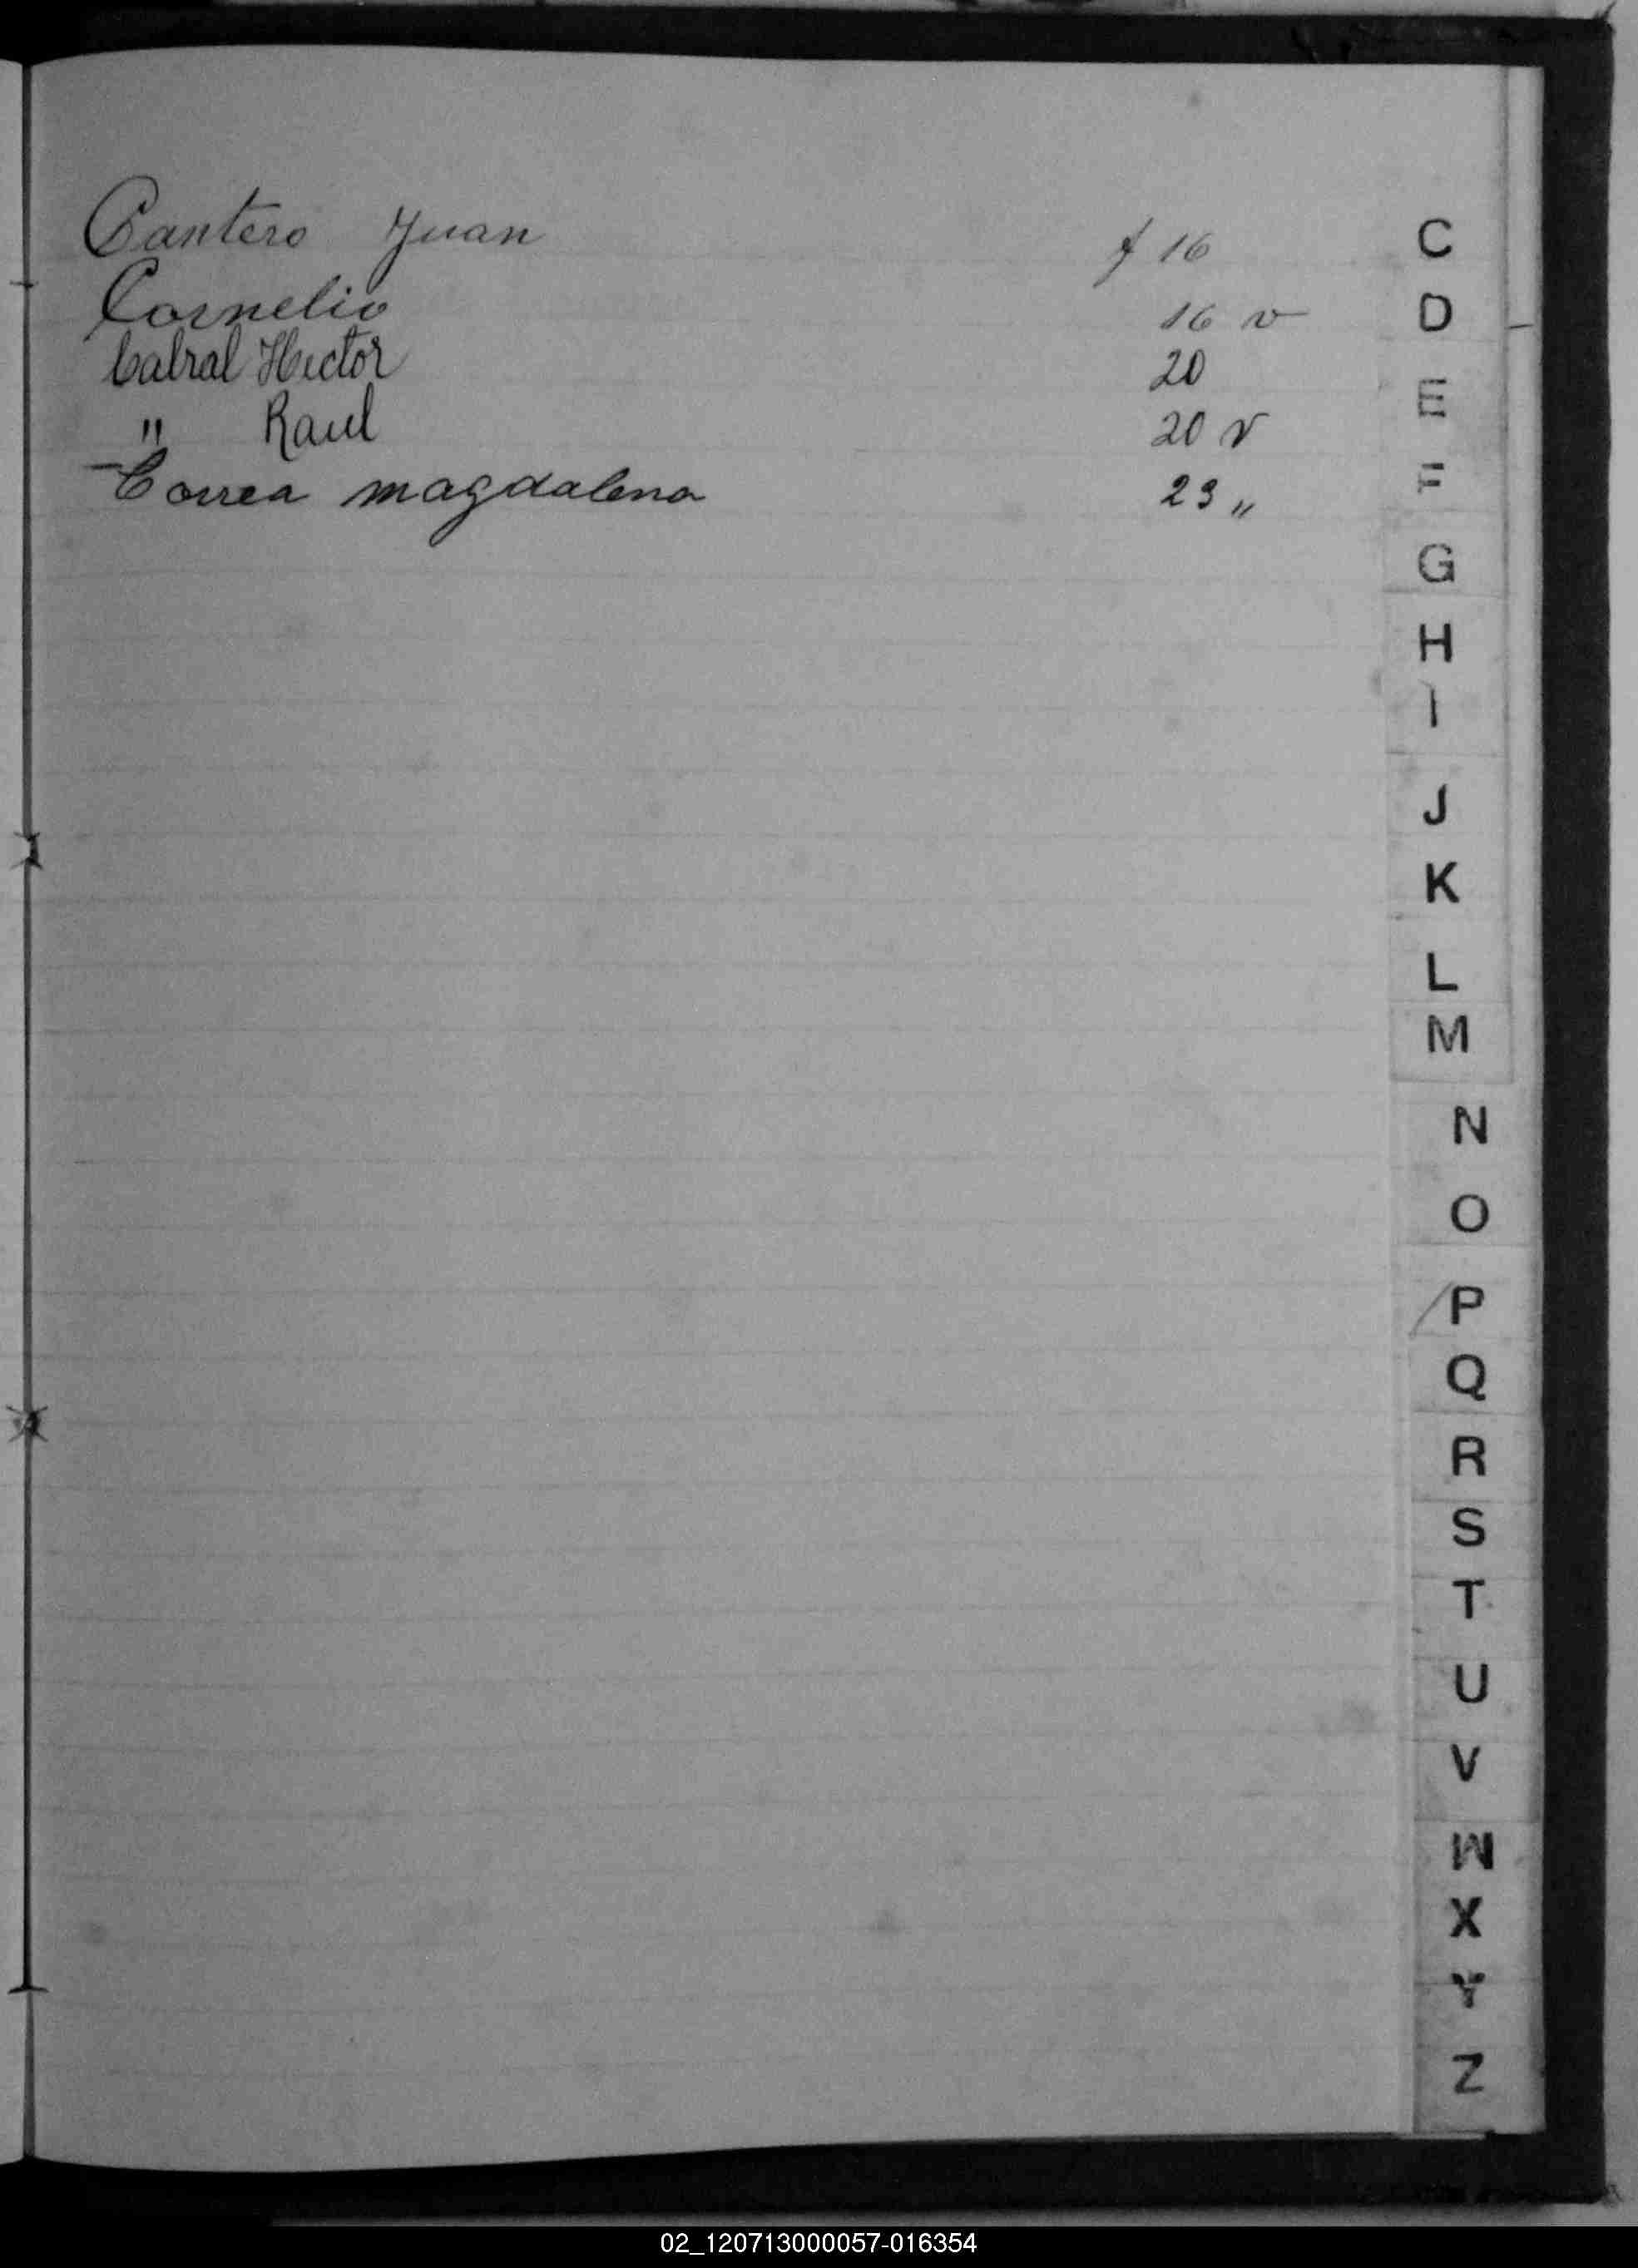 Cantero Juan f 16
Cornelio 16 v
Cabral Hector 20
" Raul 20 v
Correa magdalena 23 "
C
D
E
F
G
H
I
J
K
L
M
N
O
P
Q
R
S
T
U
V
W
X
Y
Z
02_120713000057-016354